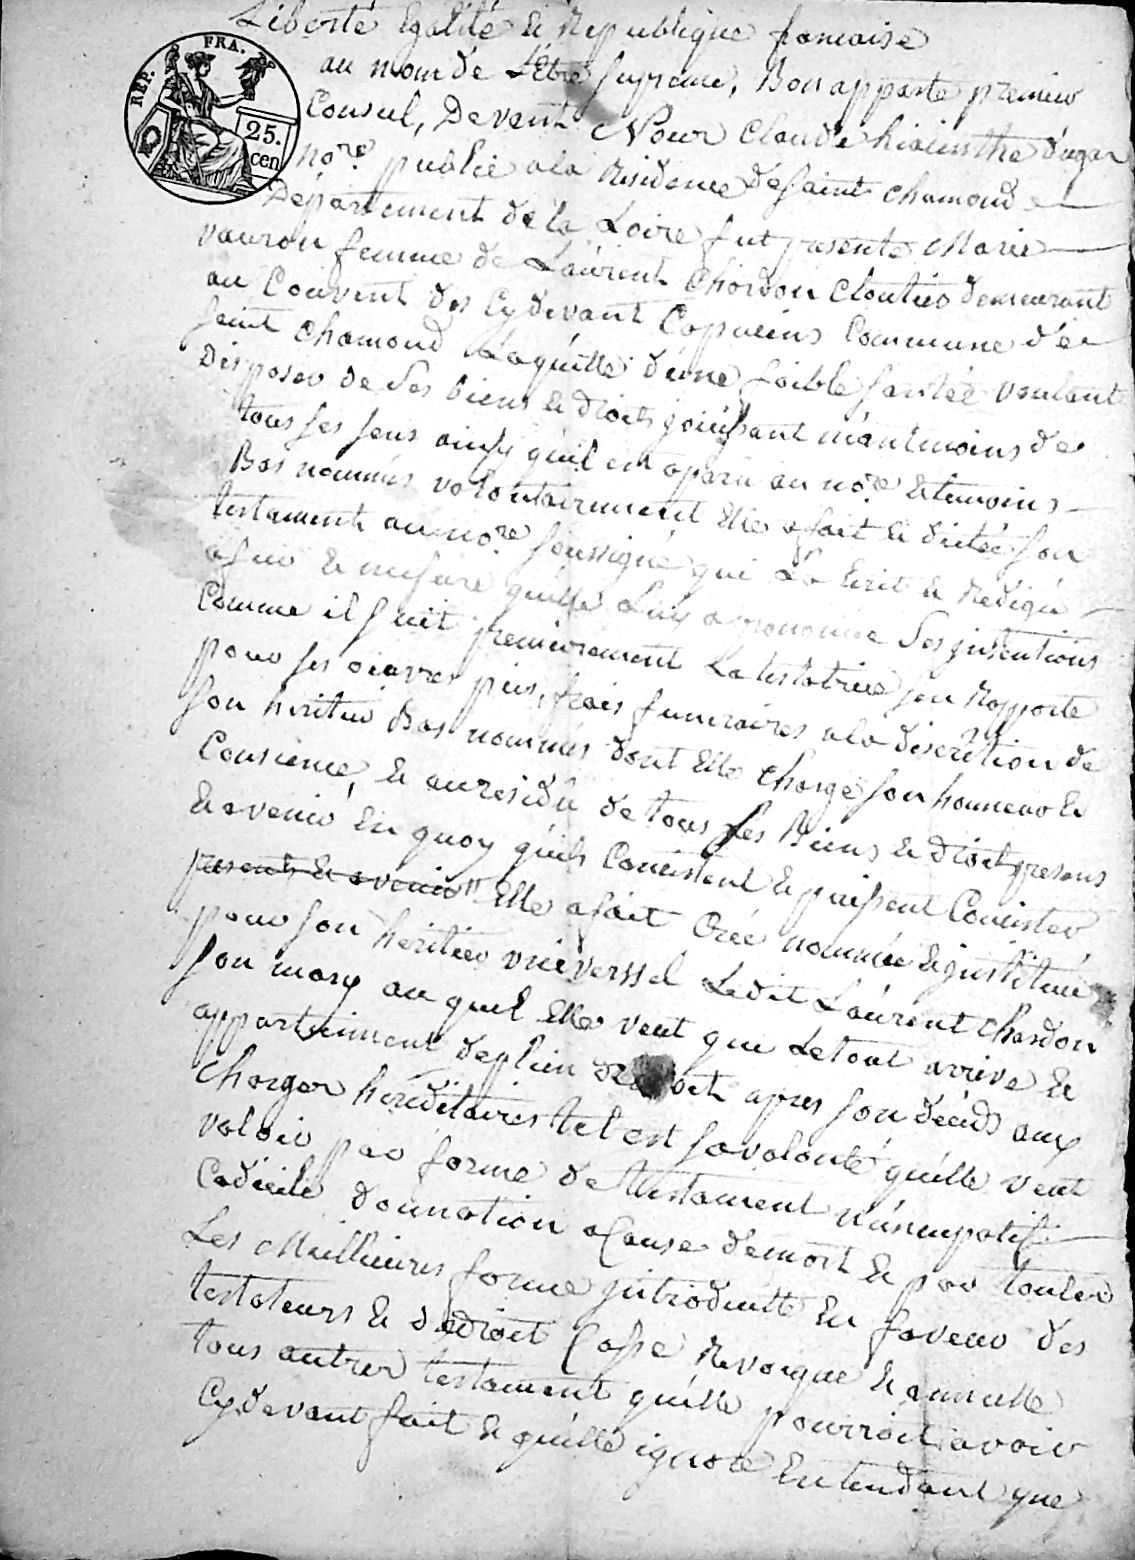 Liberté Egalité & Republique francaise
au nom de L'Etre supreme, Bonapparte premier
Consul, Devant Nour Claude hiacinthe dugas
REP. FRA.
25.
cen
Nore. public a la Residence de saint chamond
Département de la Loire fut presente Marie
vauron femme de Laurent Chordon Cloutier demeurant
au Couvent des Cydevant Capucins Commune de
saint Chamond Laquélle d'une foible santée voulant
Disposer de ses biens & droits joüissant néantmoins de
tous ses sens ainsy qu'il en a paru au nore. & temoins
Bas nommés volontairement Elle a fait & dictée son
testament au nore soussigné qui La Ecrit & Redigé
a fur & mesure qu'elle Luy a prononcée Ses jntentions
Comme il suit premierement La testatrice son Rapporte
pour ses oeuvres pies, frais funeraires a la discrétion de
son heritier Bas nommés dont Elle charge son honneur &
Consience, & au residû de tous ses Biens & droits presens
& avenir En quoy qu'ils Consistent & puissent Consister
presents & avenir Elle a fait Créé nommée & justituée
pour son heritier universsel Ledit Laurent Chardon
son mary au quel Elle veut que Le tout arrive &
appartiennent de plein droit apres son décéds aux
Charger héréditaires tel est sa volonté qu'elle veut
valoir par forme de testament nuncupatif
Codicile donnation a Cause de mort & par toutes
Les Meillieures forme jntroduitte En faveur des
testateurs & de droit Casse Revoque & annulle
tous autres testament qu'elle pourroit avoir
Cydevant fait & qu'elle ignore Entendant que